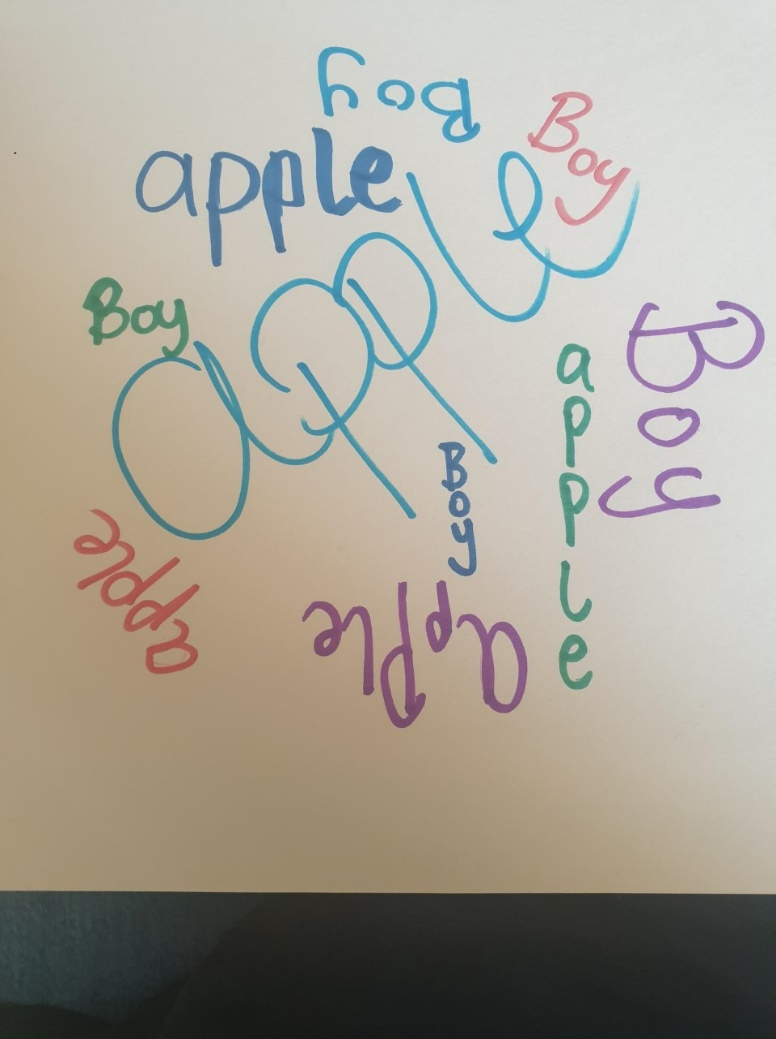 Boy
Boy
apple
apple
Boy
Boy
apple
Boy
apple
apple